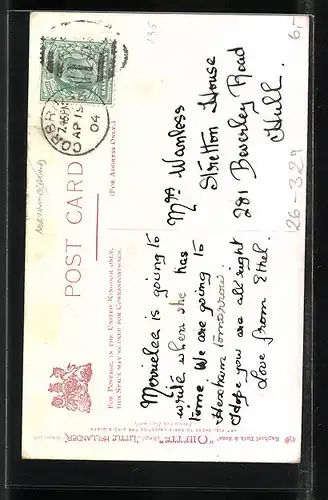 POST CARD
FOR POSTAGE IN THE UNITED KINGDOM ONLY,
THIS SPACE MAY BE USED FOR CORRESPONDENCE.
(FOR ADDRESS ONLY.)
Merrielea is going to
write when she has
time. We are going to
Hexham tomorrow.
Hope you are all right
Love from Ethel.
Mrs Wanless
Stretton House
281 Beverley Road
Hull.
7.45PM
AP 15
04
135
6,-
26-329
Raphael Tuck & Sons' "OILETTE" "LITTLE HOLLANDER"